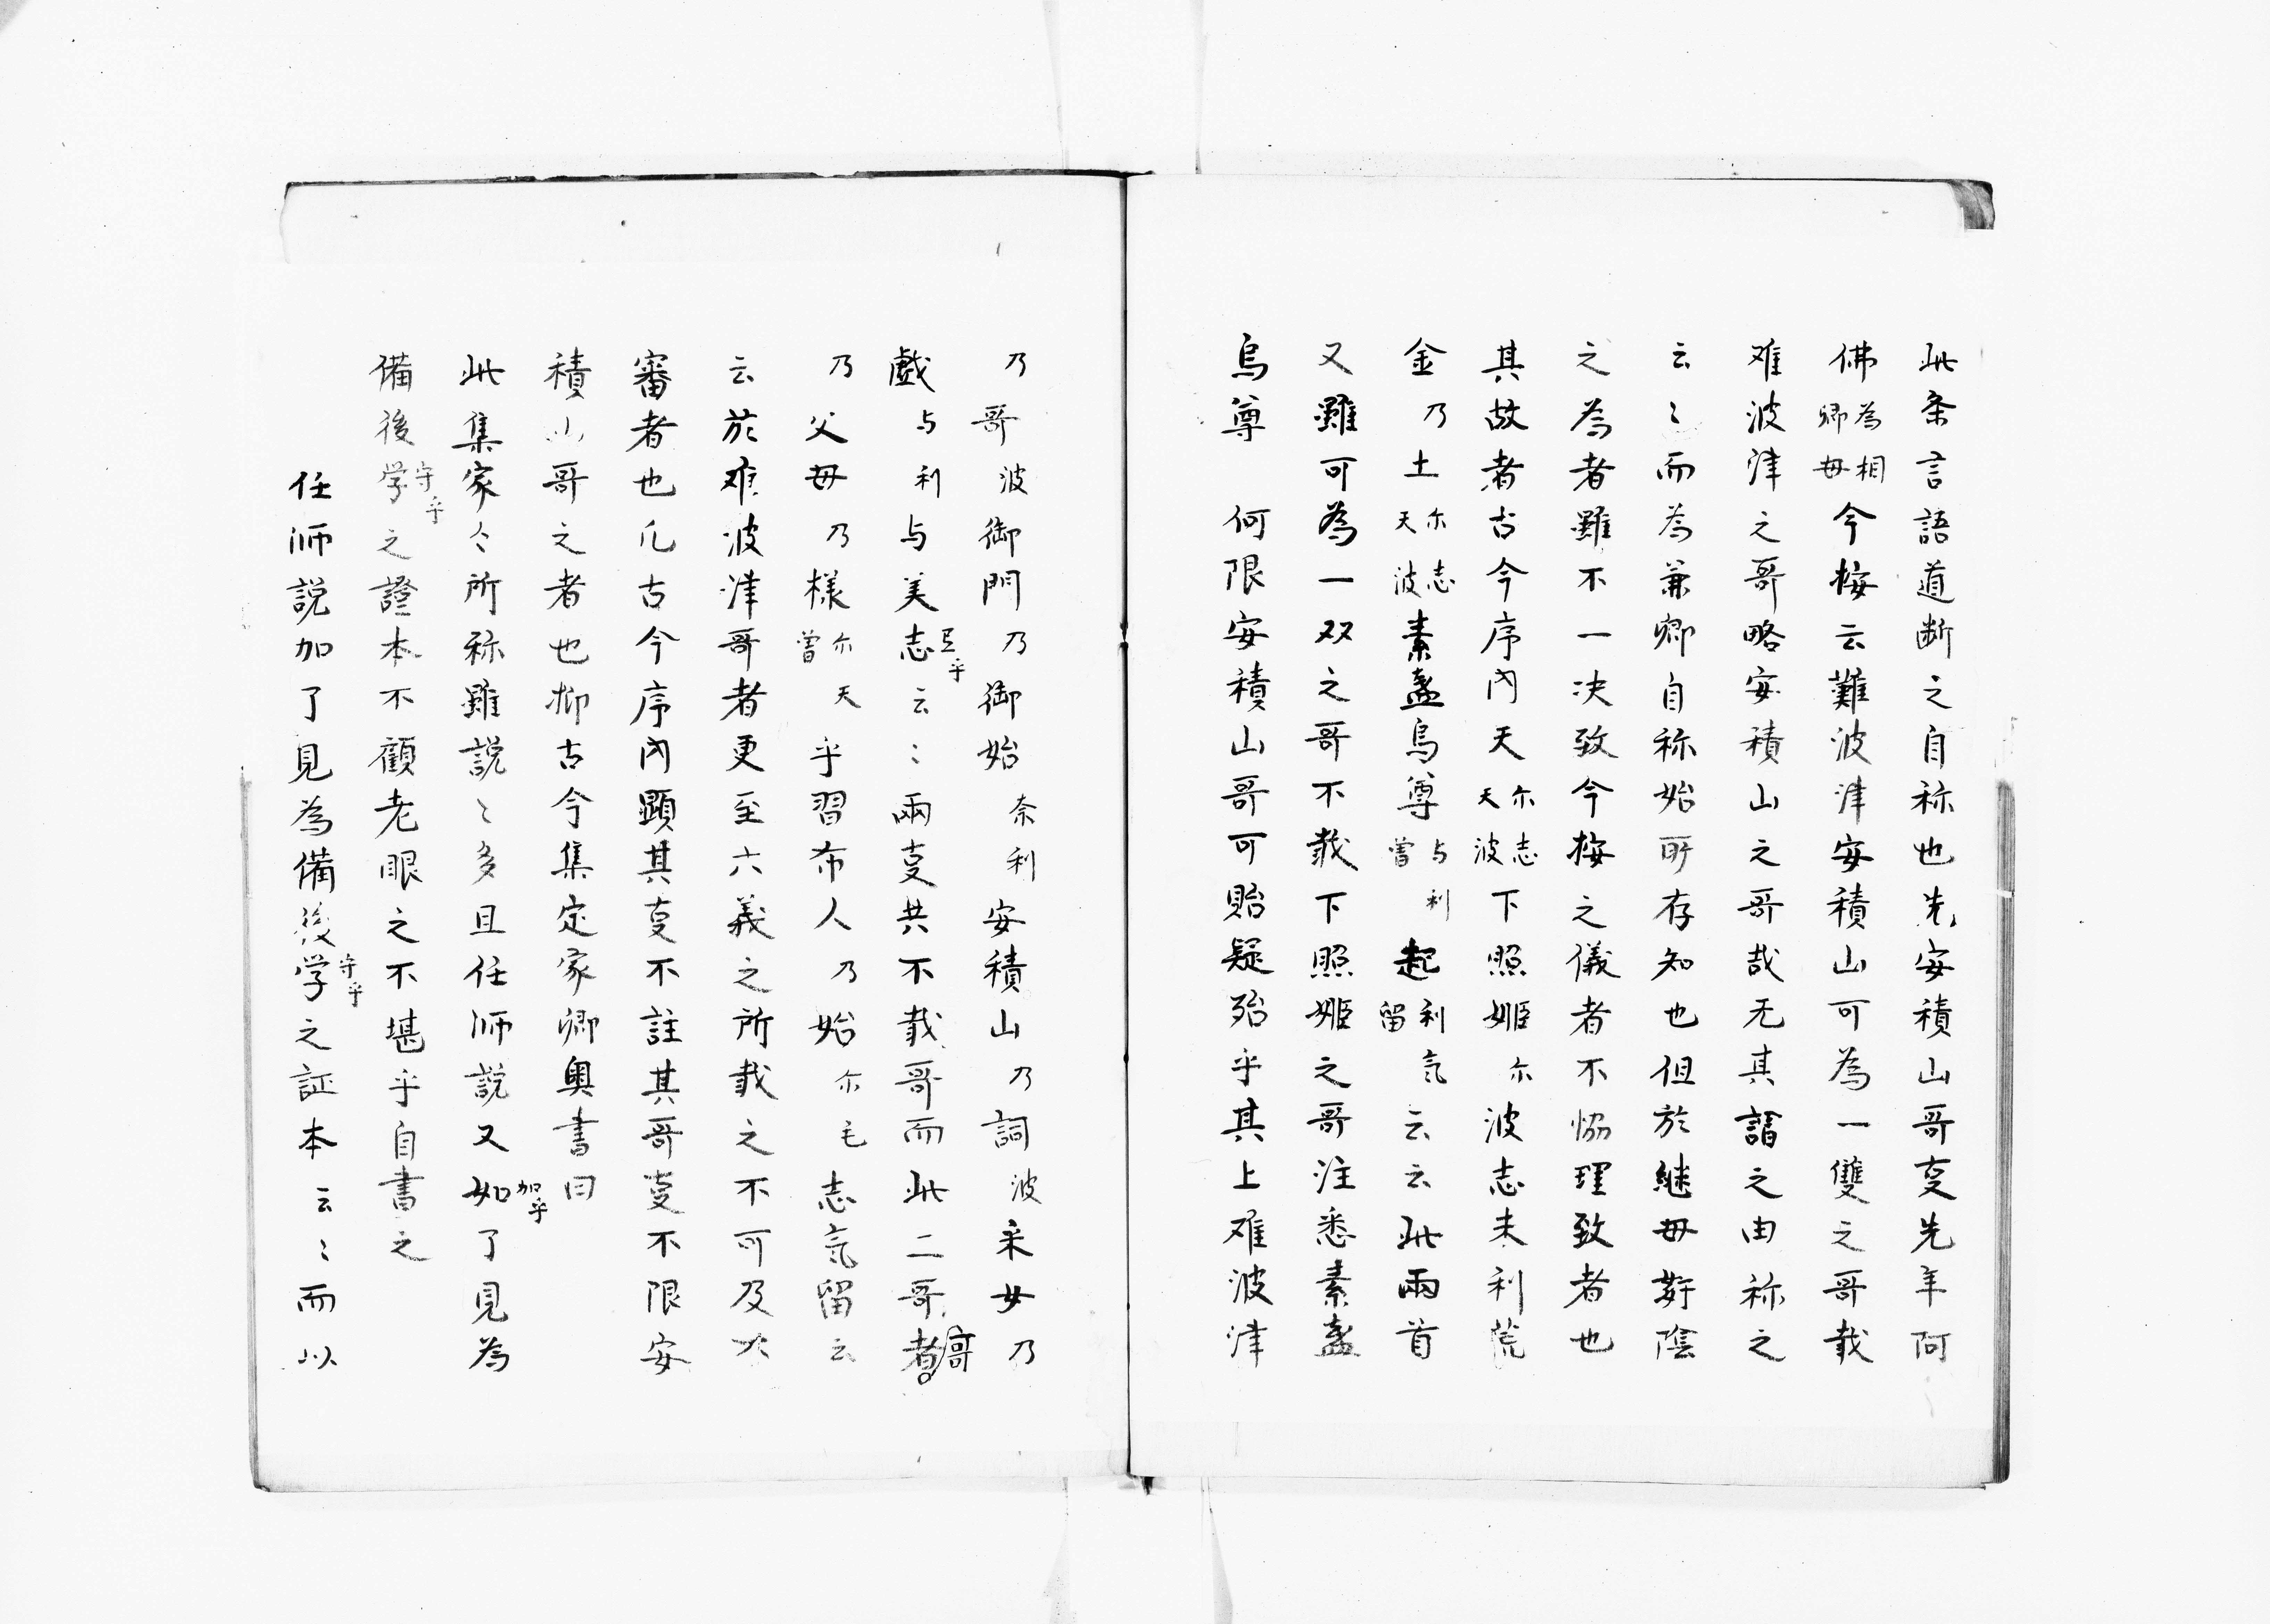 此条言語道断之自称也先安積山哥㕝先年阿
佛為相卿母今按云難波津安積山可為一雙之哥載
难波津之哥略安積山之哥哉无其謂之由称之
云〻而為兼卿自称始所存知也但於継母斬陰
之為者雖不一决致今按之儀者不恊理致者也
其故者古今序内天尓志天波下照姬尓波志末利荒
金乃土尓志天波素盞烏尊与利曽起利氣留云云此兩首
又雖可為一双之哥不載下照姬之哥注悉素盞
烏尊 何限安積山哥可貽疑殆乎其上难波津
乃哥波御門乃御始奈利安積山乃詞波采女乃
戯与利与美志云〻兩㕝共不載哥而此二哥者。
已乎
哥
乃父母乃様尓天曽乎習布人乃始尓毛志氣留云
云於难波津哥者更至六義之所載之不可及
審者也凡古今序内顕其㕝不註其哥㕝不限安
積山哥之者也抑古今集定家卿奥書曰
此集家〻所称雖説〻多且任師説又如了見為
加乎
備後学之證本不顧老眼之不堪乎自書之
守乎
任師説加了見為備後学之証本云〻而以
守乎